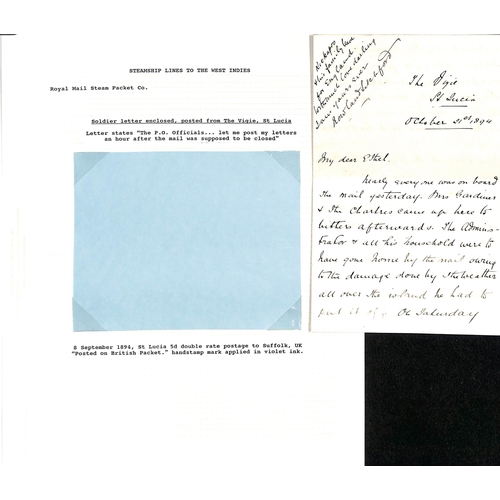 STEAMSHIP LINES TO THE WEST INDIES
Royal Mail Steam Packet Co.
Soldier letter enclosed, posted from The Vigie, St Lucia
Letter states "The P.O. Officials... let me post my letters
an hour after the mail was supposed to be closed"
8 September 1894, St Lucia 5d double rate postage to Suffolk, UK
"Posted on British Packet." handstamp mark applied in violet ink.
this family
for England
with much love darling
I am yours ever
The Vigie
St Lucia
October 21st, 1894
My dear Ethel.
Nearly everyone was on board
the mail yesterday. Mrs Gardiner
& the Chartres came up here to
bitters afterwards. The Adminis-
trator & all his household were to
have gone home by the mail owing
to the damage done by the weather
all over the island he had to
put it off. On Saturday